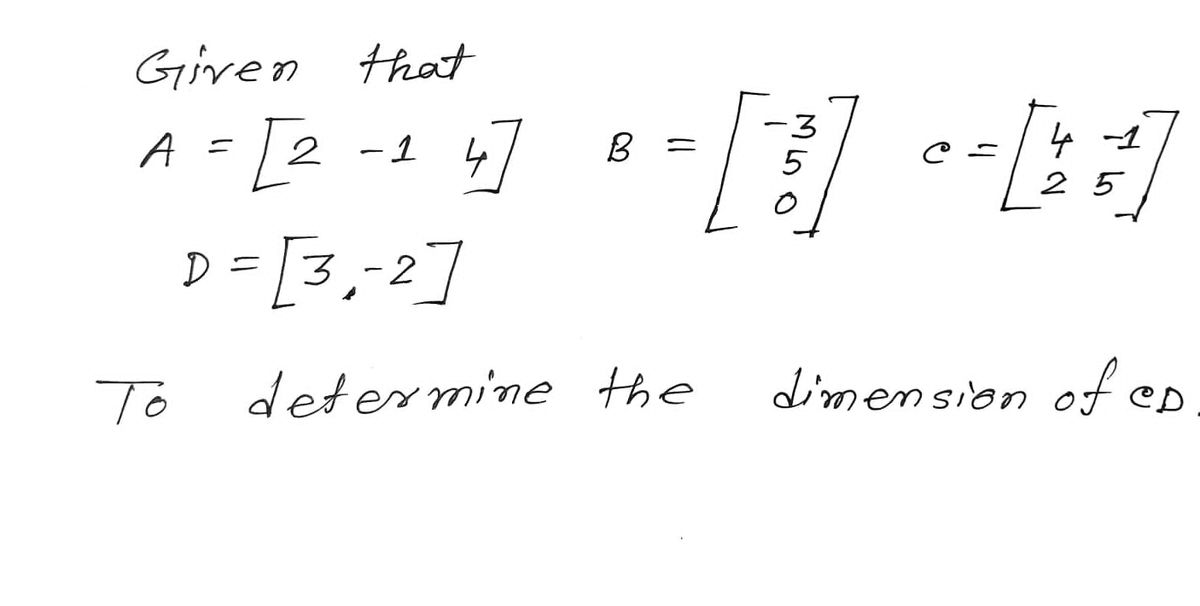 Given that
A = [2 -1 4] B = [-3 5 0] C = [4 -1 2 5]
D = [3,-2]
To determine the dimension of CD.